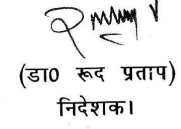 (डा0 रूद प्रताप)
निदेशक।